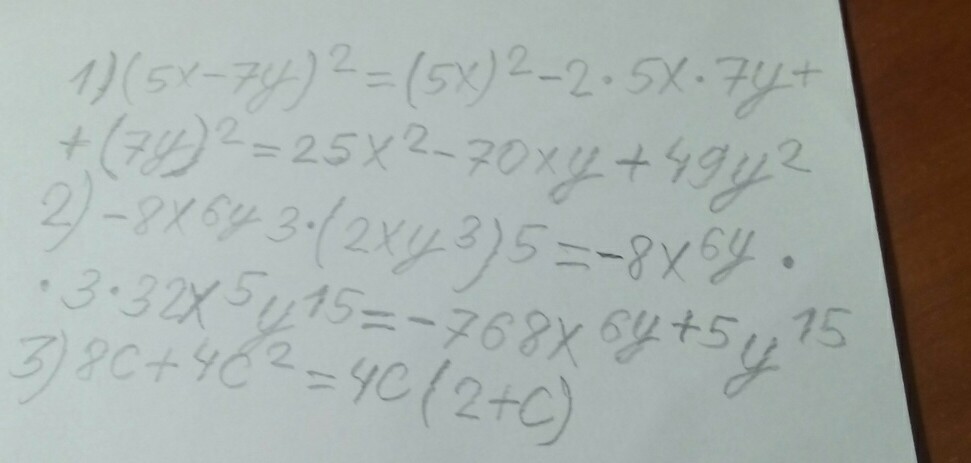 1) (5x-7y)² = (5x)² - 2·5x·7y +
+ (7y)² = 25x² - 70xy + 49y²
2) -8x⁶ʸ3·(2xy³)⁵ = -8x⁶ʸ ·
·3·32x⁵y¹⁵ = -768x⁶ʸ⁺⁵y¹⁵
3) 8c + 4c² = 4c(2+c)